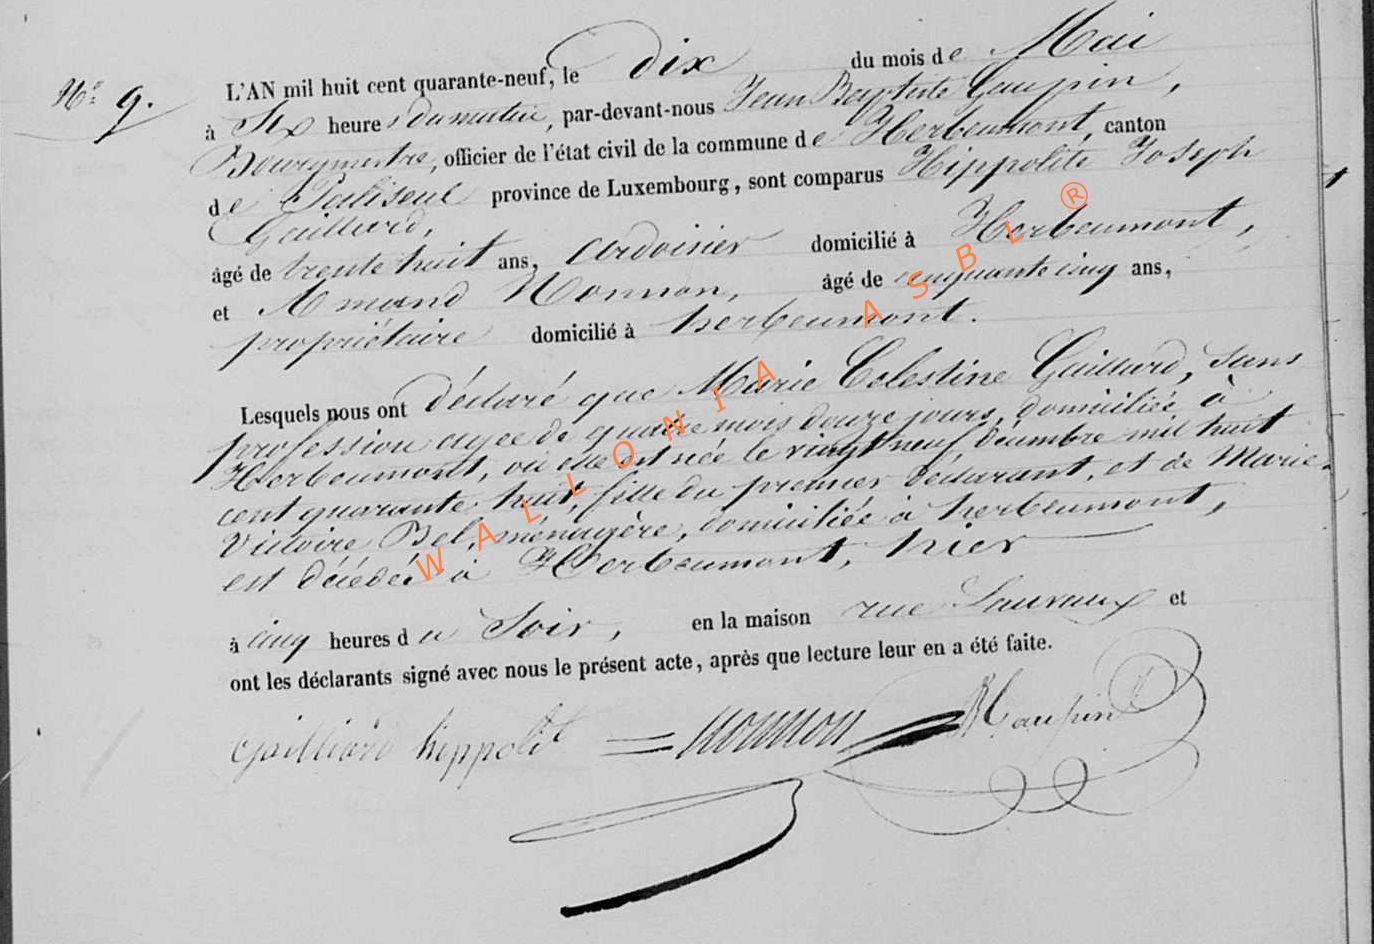 N° 9.
L'AN mil huit cent quarante-neuf, le dix du mois de Mai
à Six heures du matin, par-devant-nous Jean Baptiste Gaupin,
Bourgmestre, officier de l'état civil de la commune de Herbeumont, canton
de Paliseul province de Luxembourg, sont comparus Hippolite Joseph
Gailliard,
âgé de trente huit ans, ardoisier domicilié à Herbeumont,
et Amand Nonnon, âgé de cinquante cinq ans,
propriétaire domicilié à herbeumont.
Lesquels nous ont déclaré que Marie Celestine Gailliard, Sans
profession agée de quatre mois douze jours, domiciliée à
Herbeumont, où elle est née le vingt neuf décembre mil huit
cent quarante huit, fille du premier déclarant, et de Marie
Victoire Bel, ménagère, domiciliée à herbeumont,
est décédée à Herbeumont, hier
à cinq heures du Soir, en la maison rue Lauvaux et
ont les déclarants signé avec nous le présent acte, après que lecture leur en a été faite.
Gailliard hippolit nonnon Gaupin
WALLONIA ASBL ®